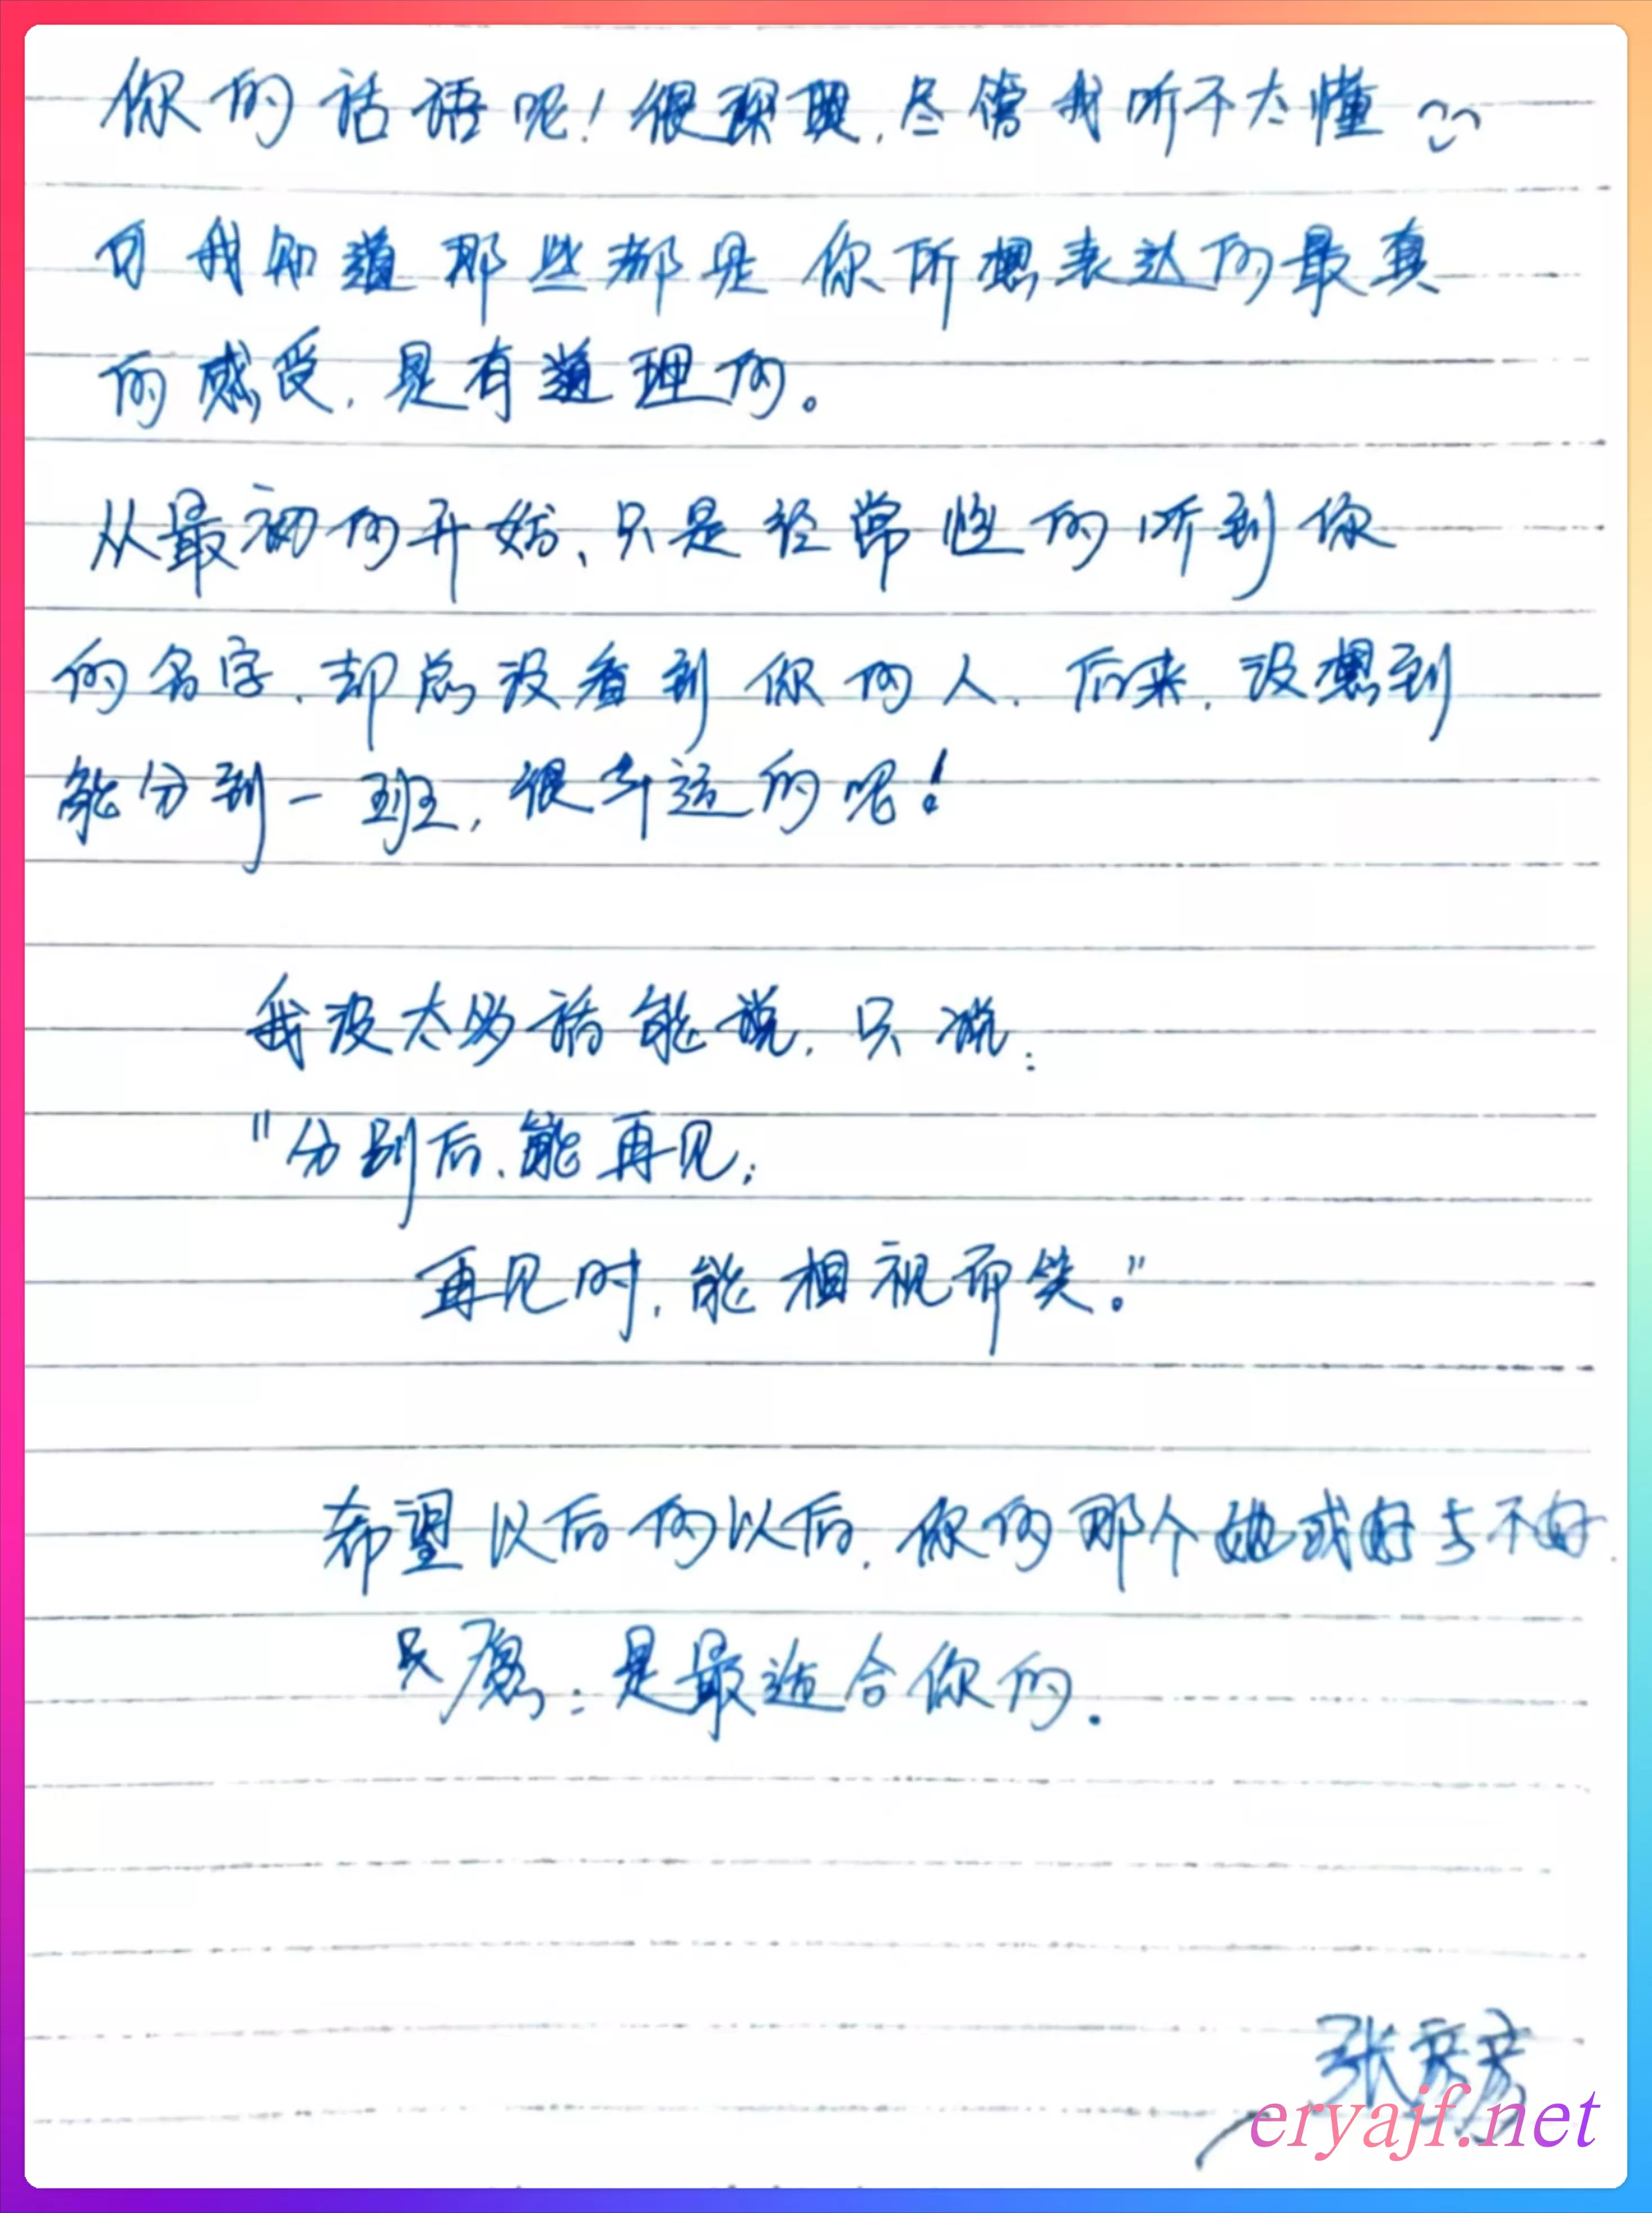 你的话语呢!很深奥,尽管我听不太懂
可我知道那些都是你所想表达的最真
的感受,是有道理的。
从最初的开始、只是经常性的听到你
的名字、却总没看到你的人.后来,没想到
能分到一班,很幸运的呢!
我没太多话能说,只说:
"分别后、能再见;
再见时,能相视而笑。"
希望以后的以后,你的那个她或好与不好.
只愿:是最适合你的.
张
eryajf.net